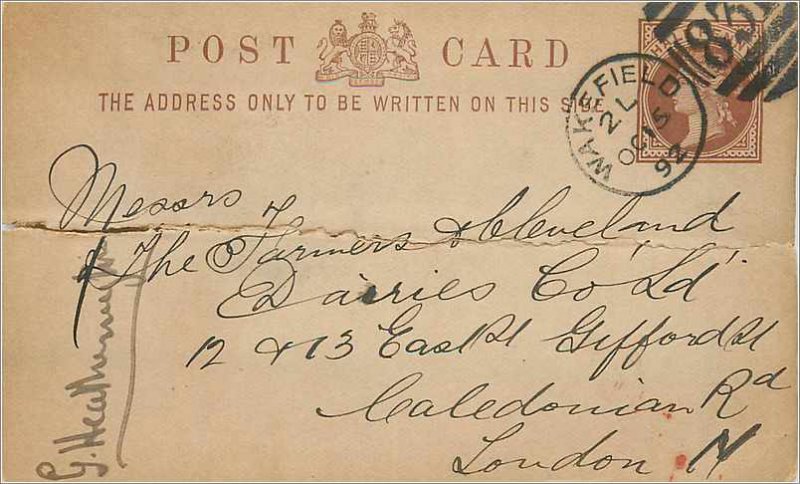 POST CARD
THE ADDRESS ONLY TO BE WRITTEN ON THIS SIDE
HALF
WAKEFIELD
2 L
OC 15
92
Messrs
The Farmers & Cleveland
Dairies Co Ld
12 & 13 East St Gifford St
Caledonian Rd
London N